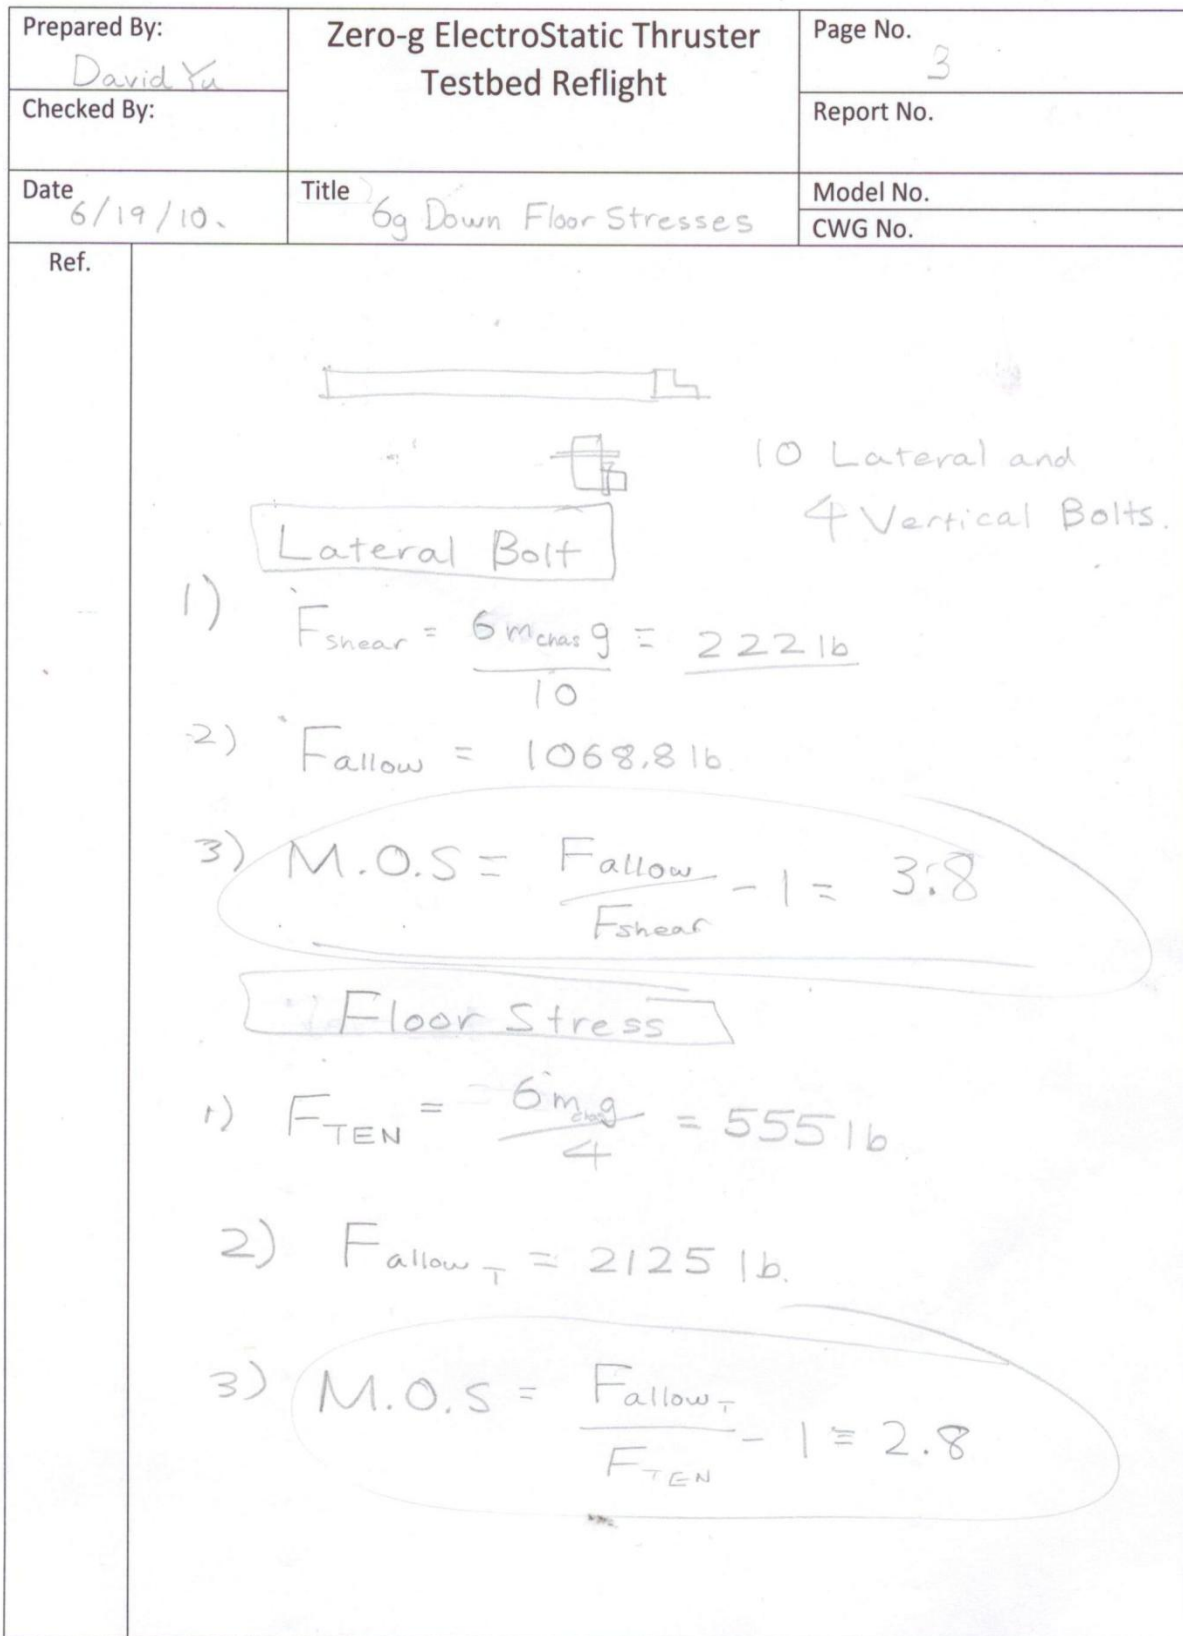 Prepared By:
David Yu
Checked By:
Zero-g ElectroStatic Thruster
Testbed Reflight
Page No.
3
Report No.
Date
6/19/10.
Title
6g Down Floor Stresses
Model No.
CWG No.
Ref.
10 Lateral and
4 Vertical Bolts.
Lateral Bolt
1) Fshear = 6 mchas g / 10 = 222 lb
2) Fallow = 1068.8 lb
3) M.O.S = Fallow / Fshear - 1 = 3.8
Floor Stress
1) FTEN = 6 mchas g / 4 = 555 lb.
2) FallowT = 2125 lb.
3) M.O.S = FallowT / FTEN - 1 = 2.8